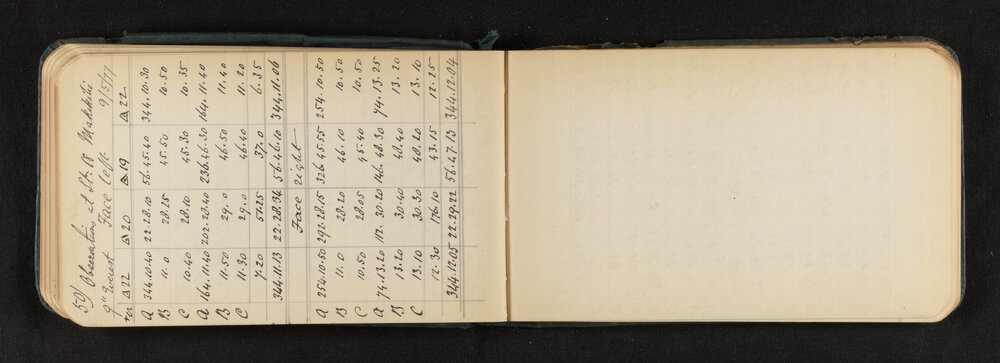 50/ Observations at Stn 18 Makikihi
9" Everest Face left 9/5/77
ver △22 △20 △19 △22
A 344.10.40 22.28.10 56.45.40 344.10.30
B 11.0 28.25 45.50 10.50
C 10.40 28.10 45.30 10.35
A 164.11.40 202.28.40 236.46.30 164.11.40
B 11.50 29.0 46.50 11.40
C 11.30 29.0 46.40 11.20
7.20 51.25 37.0 6.35
344.11.13 22.28.34 56.46.10 344.11.06
Face right
A 254.10.50 292.28.15 326.45.55 254.10.50
B 11.0 28.20 46.10 10.50
C 10.50 28.05 45.40 10.50
A 74.13.20 112.30.20 146.48.30 74.13.25
B 13.20 30.40 48.40 13.20
C 13.10 30.30 48.20 13.10
12.30 176.10 43.15 12.25
344.12.05 22.29.22 56.47.13 344.12.04